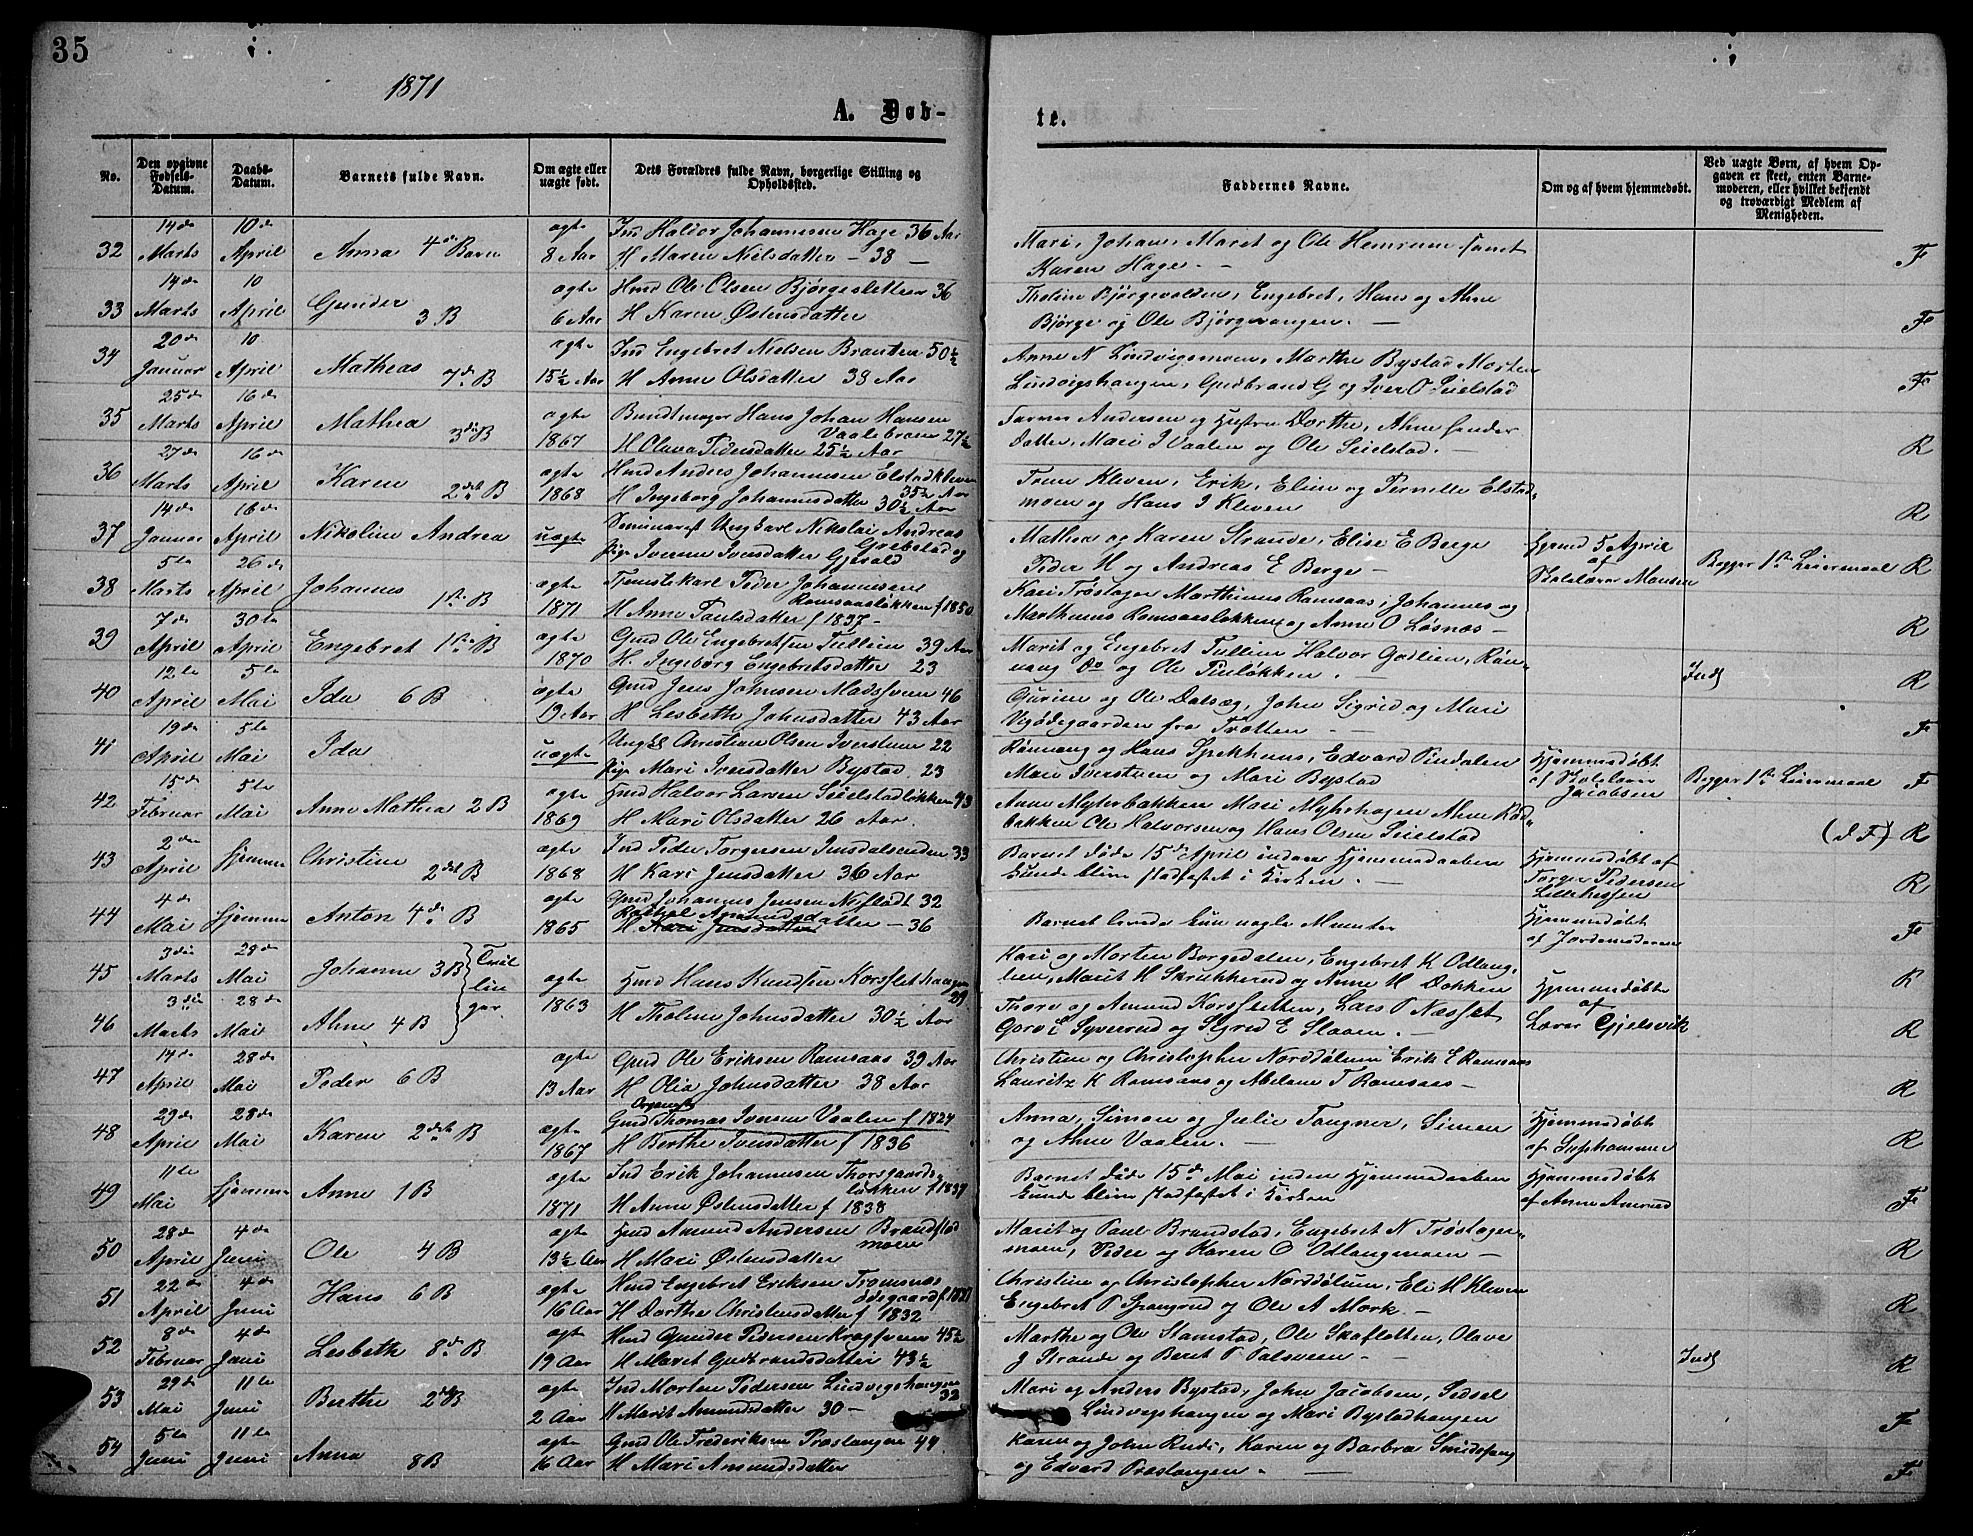 35
1871
A. Døb-
te.
No.
Den opgivne Fødsels-Datum.
Daabs-Datum.
Barnets fulde Navn.
Om ægte eller uægte født.
Dets Forældres fulde Navn, borgerlige Stilling og Opholdssted.
Faddernes Navne.
Om og af hvem hjemmedøbt.
Ved uægte Børn, af hvem Opgaven er skeet, enten Barnemoderen, eller hvilket bekjendt og troværdigt Medlem af Menigheden.
32 14de Marts 10de April Anna 4de Barn ægte 8 Aar
Ind Haldor Johannesen Hage 36 Aar
H Maren Nielsdatter – 38 –
Mari, Johan, Maret og Ole Hemrum samt
Karen Hage. – F
33 14de Marts 10 April Gunder 3 B ægte 6 Aar
Hmd Ole Olsen Bjørgesletten 36
H Karen Østensdatter
Tholine Bjørgevolden, Engebret, Hans og Ahne
Bjørge og Ole Bjørgevangen. – F
34 20de Januar 10 April Matheas 7de B ægte 15½ Aar
Ind Engebret Nielsen Brauten 50½
H Anne Olsdatter 38 Aar
Anne N Lindvigsmoen, Marthe Bystad Morten
Lindvigshaugen, Gudbrand G og Iver O Seielstad F
35 25de Marts 16de April Mathea 3die B ægte 1867
Bundtmager Hans Johan Hansen
Vaalebroen 27½
H Olava Pedersdatter 25½ Aar
Farver Andersen og Hustru Dorthe, Ahne Sander
Datter, Mari I Vaalen og Ole Seielstad. – R
36 27de Marts 16de April Karen 2det B ægte 1868
Hmd Andres Johannesen Elstadkleven
35½ Aar
H Ingeborg Johannesdatter 30½ Aar
Trine Kleven, Erik, Eline og Pernille Elstad-
moen og Hans I Kleven R
37 14de Januar 16de April Nikoline Andrea uægte
Seminarist Ungkarl Nikolai Andreas
Grebstad og
Pige Iverine Iversdatter Gjesald
Mathea og Karen Strande, Elise E Berge
Peder H og Andreas E Berge –
Hjemd 5 April
af
Skolelærer Mansen
Begges 1ste Leiermaal R
38 5te Marts 26de April Johannes 1ste B ægte 1871
Tjenestekarl Peder Johannesen
Ramsaasløkken f 1850
H Anne Paulsdatter f 1837 –
Kari Trøstager Marthinus Ramsaas, Johannes og
Marthinus Ramsaasløkken og Anne O Løsnæs – R
39 7de April 30te April Engebret 1ste B ægte 1870
Gmd Ole Engebretsen Tullien 39 Aar
H. Ingeborg Engebretsdatter 23
Marit og Engebret Tullien Halvor Godlien, Røn-
naug Do og Ole Puuløkken. – Inds R
40 12te April 5te Mai Ida 6 B ægte 19 Aar
Gmd Jens Johnsen Madssveen 46
H Lesbeth Johnsdatter 43 Aar
Gurine og Ole Dalsæg, John Sigrid og Mari
Vigødegaarden fra Trætten – F
41 19de April 5te Mai Ida uægte
Ungk Christian Olsen Iverstuen 22
Pige Mari Iversdatter Bystad 23
Rønnaug og Hans Spekhus, Edvard Pindalen
Mari Iverstuen og Mari Bystad
Hjemmedøbt
af Skolelærer
Jacobsen
Begges 1ste Leiermaal F
42 15de Februar 5te Mai Anne Mathea 2 B ægte 1869
Hmd Halvor Larsen Seielstadløkken 43
H Mari Olsdatter 26 Aar.
Anne Myterbakken Mari Myhrhagen Ahne Rød-
bakken Ole Halvorsen og Hans Olsen Seielstad (d F) R
43 2den April hjemme Christine 2det B ægte 1868
Ind Peder Torgersen Jensdalsenden 33
H Kari Jensdatter 36 Aar
Barnet døde 15de April inden Hjemmedaaben
kunde blive stadfæstet i Kirken. –
Hjemmedøbt af
Torger Pedersen
Lillehjessen R
44 4de Mai hjemme Anton 4de B ægte 1865
Gmd Johannes Jensen Nisflodt 32
Rachel Amundsdatter
H Kari Jensdatter – 36
Barnet levede kun nogle Minuter
Hjemmedøbt
af Jordemoderen F
45 3die Marts 28de Mai Johanne 3 B Tvil
lin
ger ægte 1863
Hmd Hans Knudsen Korsslethaugen
29
H Tholine Johnsdatter 30½ Aar
Kari og Morten Borgedalen, Engebret K Odlaug-
lien, Marit H Skrukkerud og Anne H Dokken
Hjemmedøbte
af
Lærer Gjelsvik R
46 3die Marts 28de Mai Ahne 4 B
Thore og Amund Korssletten, Lars P Næsset
Goro L Syverud og Sigrid E Slaaen. – R
47 14de April 28de Mai Peder 6 B ægte 13 Aar
Gmd Ole Eriksen Ramsaas 39 Aar
H Olia Johnsdatter 38 Aar
Christine og Christopher Norddølum Erik E Ramsaas
Lauritz K Ramsaas og Abelone T Ramsaas – R
48 29de April 28de Mai Karen 2det B ægte 1867
Organist
Gmd Thomas Iversen Vaalen f 1824
H Berthe Iversdatter f 1836
Anna, Simon og Julie Taugner, Simen
og Anne Vaalen. –
Hjemmedøbt
af Sephammer R
49 11te Mai hjemme Anne 1 B ægte 1871
Ind Erik Johannesen Thorsgaards
løkken f 1837
H Anne Østensdatter f 1838
Barnet døde 15de Mai inden Hjemmedaaben
kunde blive stadfæstet i Kirken
Hjemmedøbt
af Anne Amrud F
50 28de April 4de Juni Ole 4 B ægte 13½ Aar
Hmd Amund Andersen Brandstad
moen
H Mari Østensdatter
Marit og Paul Brandstad, Engebret N Trøstager-
moen, Peder og Karen O Odlaugmoen – R
51 22de April 4de Juni Hans 6 B ægte 16 Aar
Hmd Engebret Eriksen Tromsnæs
ødegaard f 1827
H Dorthe Christensdatter f 1832
Christine og Christopher Norddølum, Eli H Kleven
Engebret P Spangrud og Ole A Mork. – R
52 8de Februar 4de Juni Lesbeth 8de B ægte 19 Aar
Hmd Gunder Pedersen Kragsveen 45½
H Maret Gudbrandsdatter 43½
Marthe og Ole Stamstad, Ole Skafløtten, Olave
J Strande og Beret P Palsveen. – Inds R
53 29de Mai 11te Juni Berthe 2det B ægte 2 Aar
Ind Morten Pedersen Lindvigshaugen
32
H Marit Amundsdatter 30 –
Mari og Anders Bystad, John Jacobsen, Sidsel
Lindvigshaugen og Mari Bystadhaugen F
54 5te Juni 11te Juni Anna 8 B ægte 16 Aar
Gmd Ole Frederiksen Præslangen 44
H Mari Amundsdatter
Karen og John Ruds, Karen og Barbra Smidsfang
og Edvard Præslangen. – F